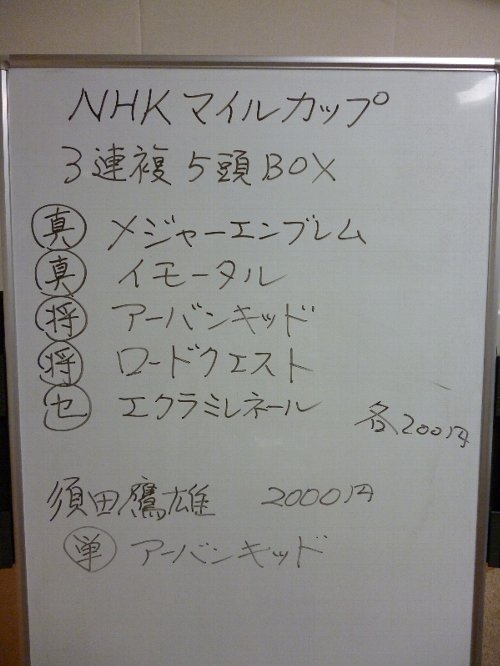 NHKマイルカップ
3連複 5頭BOX
真 メジャーエンブレム
真 イモータル
将 アーバンキッド
将 ロードクエスト
セ エクラミレネール
各200円
須田鷹雄 2000円
単 アーバンキッド